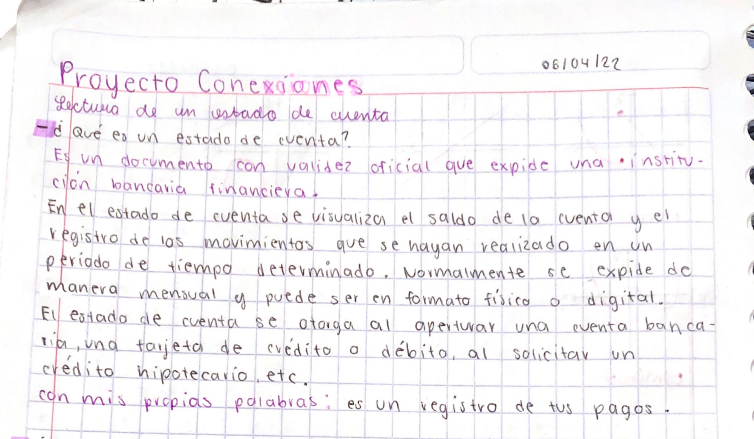 06/04/22
Proyecto Conexiones
Lectura de un estado de cuenta
-¿Qué es un estado de cuenta?
Es un documento con validez oficial que expide una institu-
ción bancaria financiera.
En el estado de cuenta se visualiza el saldo de la cuenta y el
registro de los movimientos que se hayan realizado en un
periodo de tiempo determinado. Normalmente se expide de
manera mensual y puede ser en formato físico o digital.
El estado de cuenta se otorga al aperturar una cuenta banca-
ria, una tarjeta de crédito o débito, al solicitar un
crédito hipotecario, etc.
con mis propias palabras: es un registro de tus pagos.